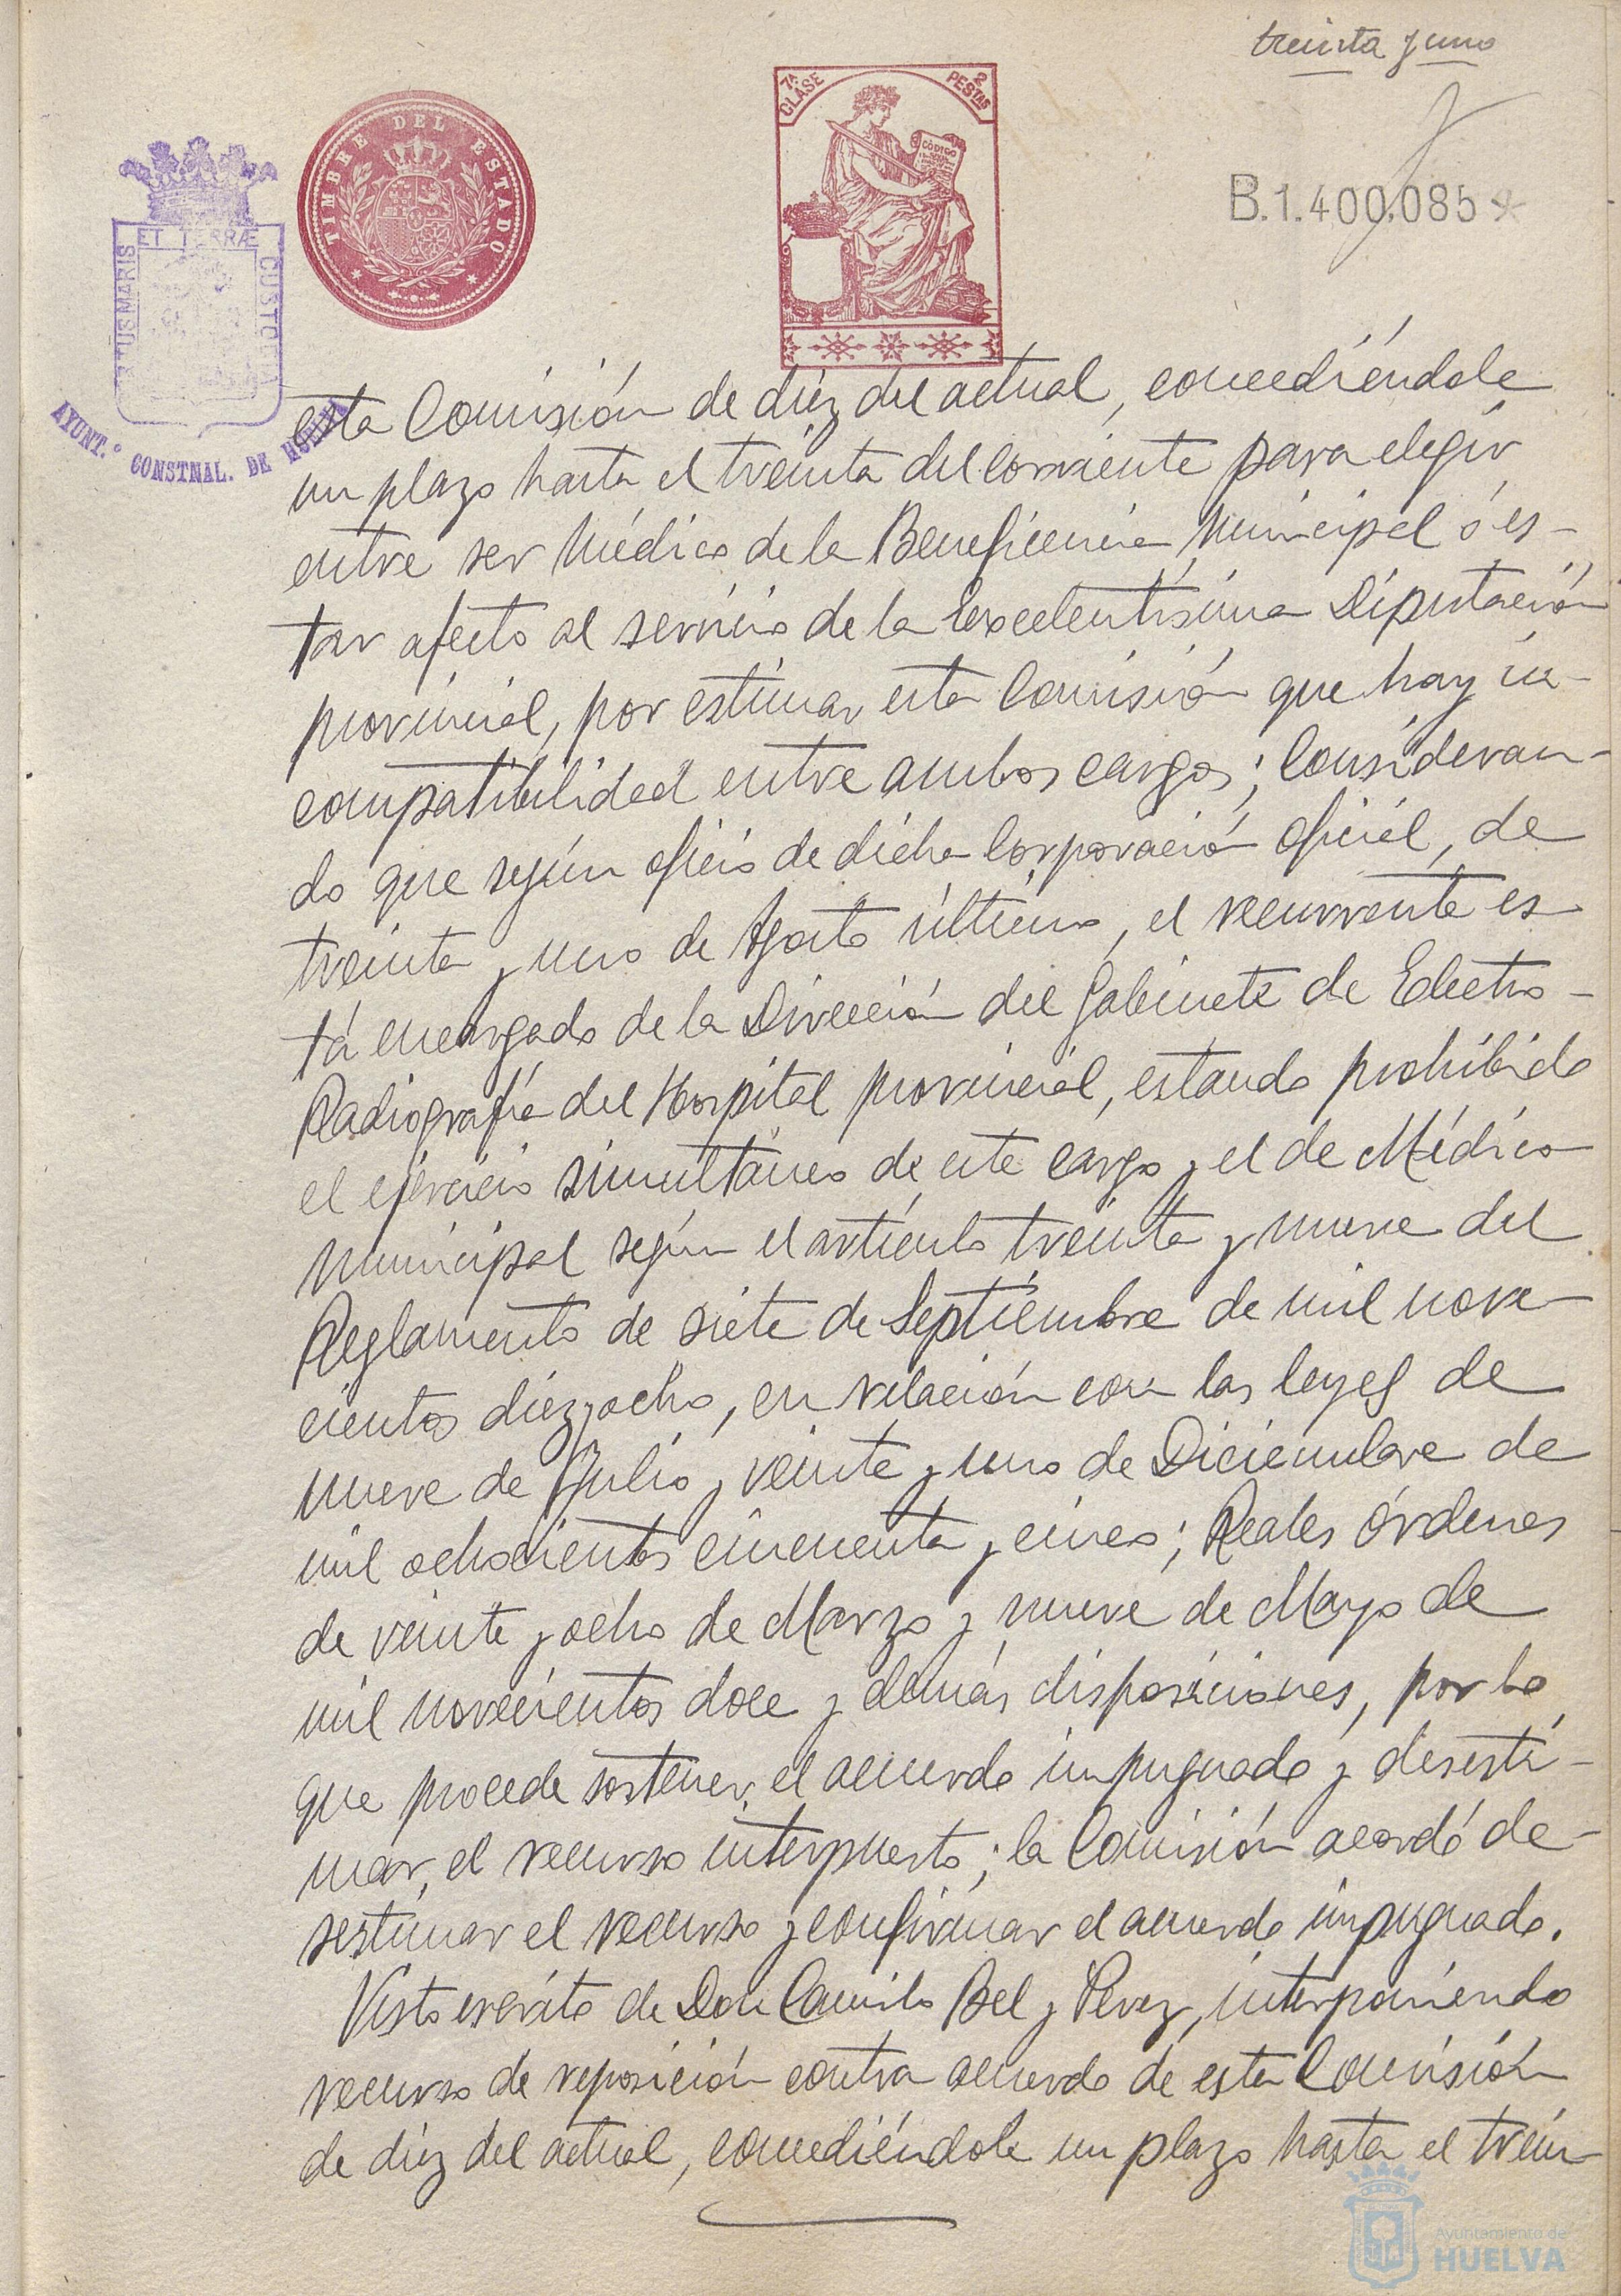 treinta y uno
7ª CLASE
2 PESTAS
TIMBRE DEL ESTADO
CÓDIGO
B.1.400.085
ET TERRÆ
PORTUS MARIS
CUSTODIA
AYUNT.º CONSTNAL. DE HUELVA
esta Comisión de diez del actual, concediéndole
un plazo hasta el treinta del corriente para elegir
entre ser Médico de la Beneficencia Municipal ó es-
tar afecto al servicio de la Excelentísima Diputación
provincial, por estimar esta Comisión que hay in-
compatibilidad entre ambos cargos; Consideran-
do que según oficio de dicha Corporación oficial, de
treinta y uno de Agosto último, el recurrente es-
tá encargado de la Dirección del Gabinete de Electro-
Radiografía del Hospital provincial, estando prohibido
el ejercicio simultáneo de este cargo y el de Médico
municipal según el artículo treinta y nueve del
Reglamento de siete de Septiembre de mil nove-
cientos diez y ocho, en relación con las leyes de
nueve de Julio y veinte y uno de Diciembre de
mil ochocientos cincuenta y cinco; Reales órdenes
de veinte y ocho de Marzo y nueve de Mayo de
mil novecientos doce y demás disposiciones, por lo
que procede sostener el acuerdo impugnado y desesti-
mar el recurso interpuesto; la Comisión acordó de-
sestimar el recurso y confirmar el acuerdo impugnado.
Visto escrito de Don Camilo Bel y Perez, interponiendo
recurso de reposición contra acuerdo de esta Comisión
de diez del actual, concediéndole un plazo hasta el trein-
Ayuntamiento de
HUELVA